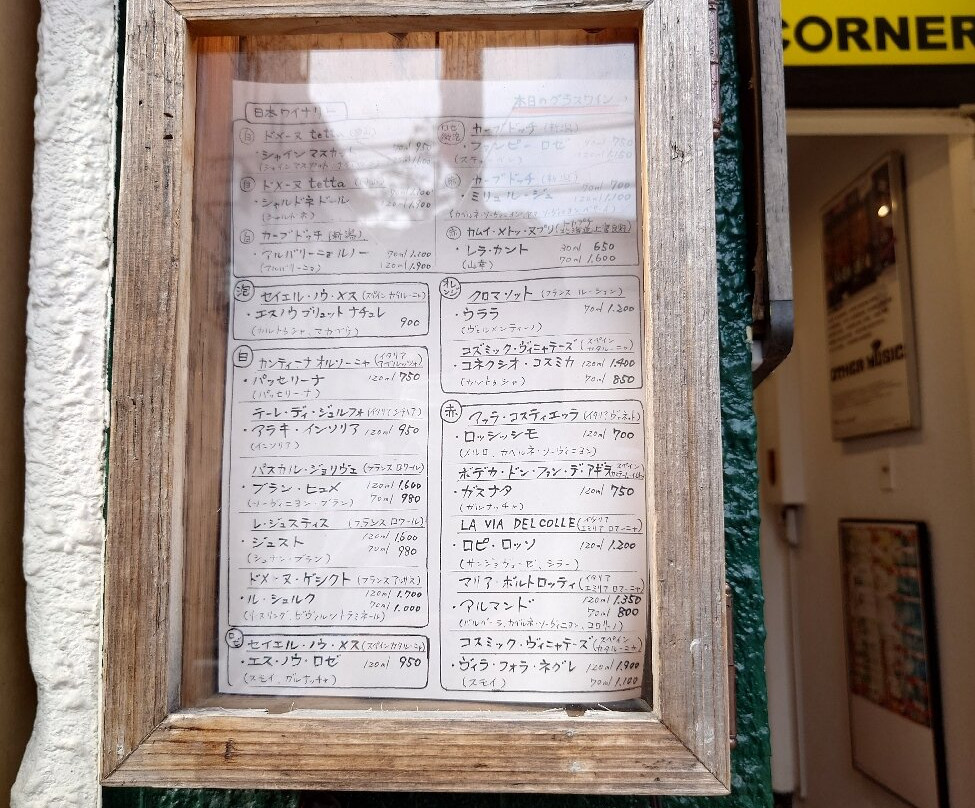 CORNER
本日のグラスワイン
日本ワイナリー
白 ドメーヌ tetta
・シャインマスカット
白 ドメーヌ tetta
・シャルドネ ドール
(シャルドネ)
白 カーブドッチ (新潟)
・アルバリーニョ ルノー 70ml 1.100
(アルバリーニョ) 120ml 1.900
泡 セイエル・ノウ・メス (スペイン カタルーニャ)
・エスノウ ブリュット ナチュレ 900
(カルトゥシャ、マカブウ)
白 カンティーナ オルソーニャ (イタリア アブルッツォ)
・パッセリーナ 120ml 750
(パッセリーナ)
テーレ・ディ・ジュルフォ (イタリア シチリア)
・アラキ・インソリア 120ml 950
(インソリア)
パスカル・ジョリヴェ (フランス ロワール)
・ブラン・ヒュメ 120ml 1.600
(ソーヴィニヨン・ブラン) 70ml 980
レ・ジュスティス (フランス ロワール)
・ジュスト 120ml 1.600
(シュナン・ブラン) 70ml 980
ドメーヌ・ゲシクト (フランス アルザス)
・ル・シュルク 120ml 1.700
70ml 1.000
(リースリング、ピヴァルツトラミネール)
ロゼ セイエル・ノウ・メス (スペイン カタルーニャ)
・エス・ノウ・ロゼ 120ml 950
(スモイ、ガルナッチャ)
カーブドッチ (新潟)
・ファンピー ロゼ 750
1.150
赤 カーブドッチ (新潟)
・ミリュル・ジュ 70ml 700
赤 カムイ・メトッ・ヌプリ
・レラ・カント 30ml 650
(山幸) 70ml 1.600
オレンジ クロマゾット (フランス ルーション)
・ウララ 70ml 1.200
(ヴェルメンティーノ)
コズミック・ヴィニャテーズ (スペイン カタルーニャ)
・コネクシオ・コスミカ 120ml 1.400
(カルトゥシャ) 70ml 850
赤 マァラ・コスティエッラ (イタリア ヴェネト)
・ロッシッシモ 120ml 700
(メルロ、カベルネ・ソーヴィニヨン)
ボデカ・ドン・ファン・デ・アギラ
・ガスナタ 120ml 750
(ガルナッチャ)
LA VIA DEL COLLE (イタリア エミリア ロマーニャ)
・ロピ・ロッソ 120ml 1.200
(サンジョヴェーゼ、シラー)
マリア・ボルトロッティ (イタリア エミリア ロマーニャ)
・アルマンド 120ml 1.350
70ml 800
コスミック・ヴィニャテーズ (スペイン カタルーニャ)
・ヴィラ・フォラ・ネグレ 120ml 1.900
(スモイ) 70ml 1.100
OTHER MUSIC